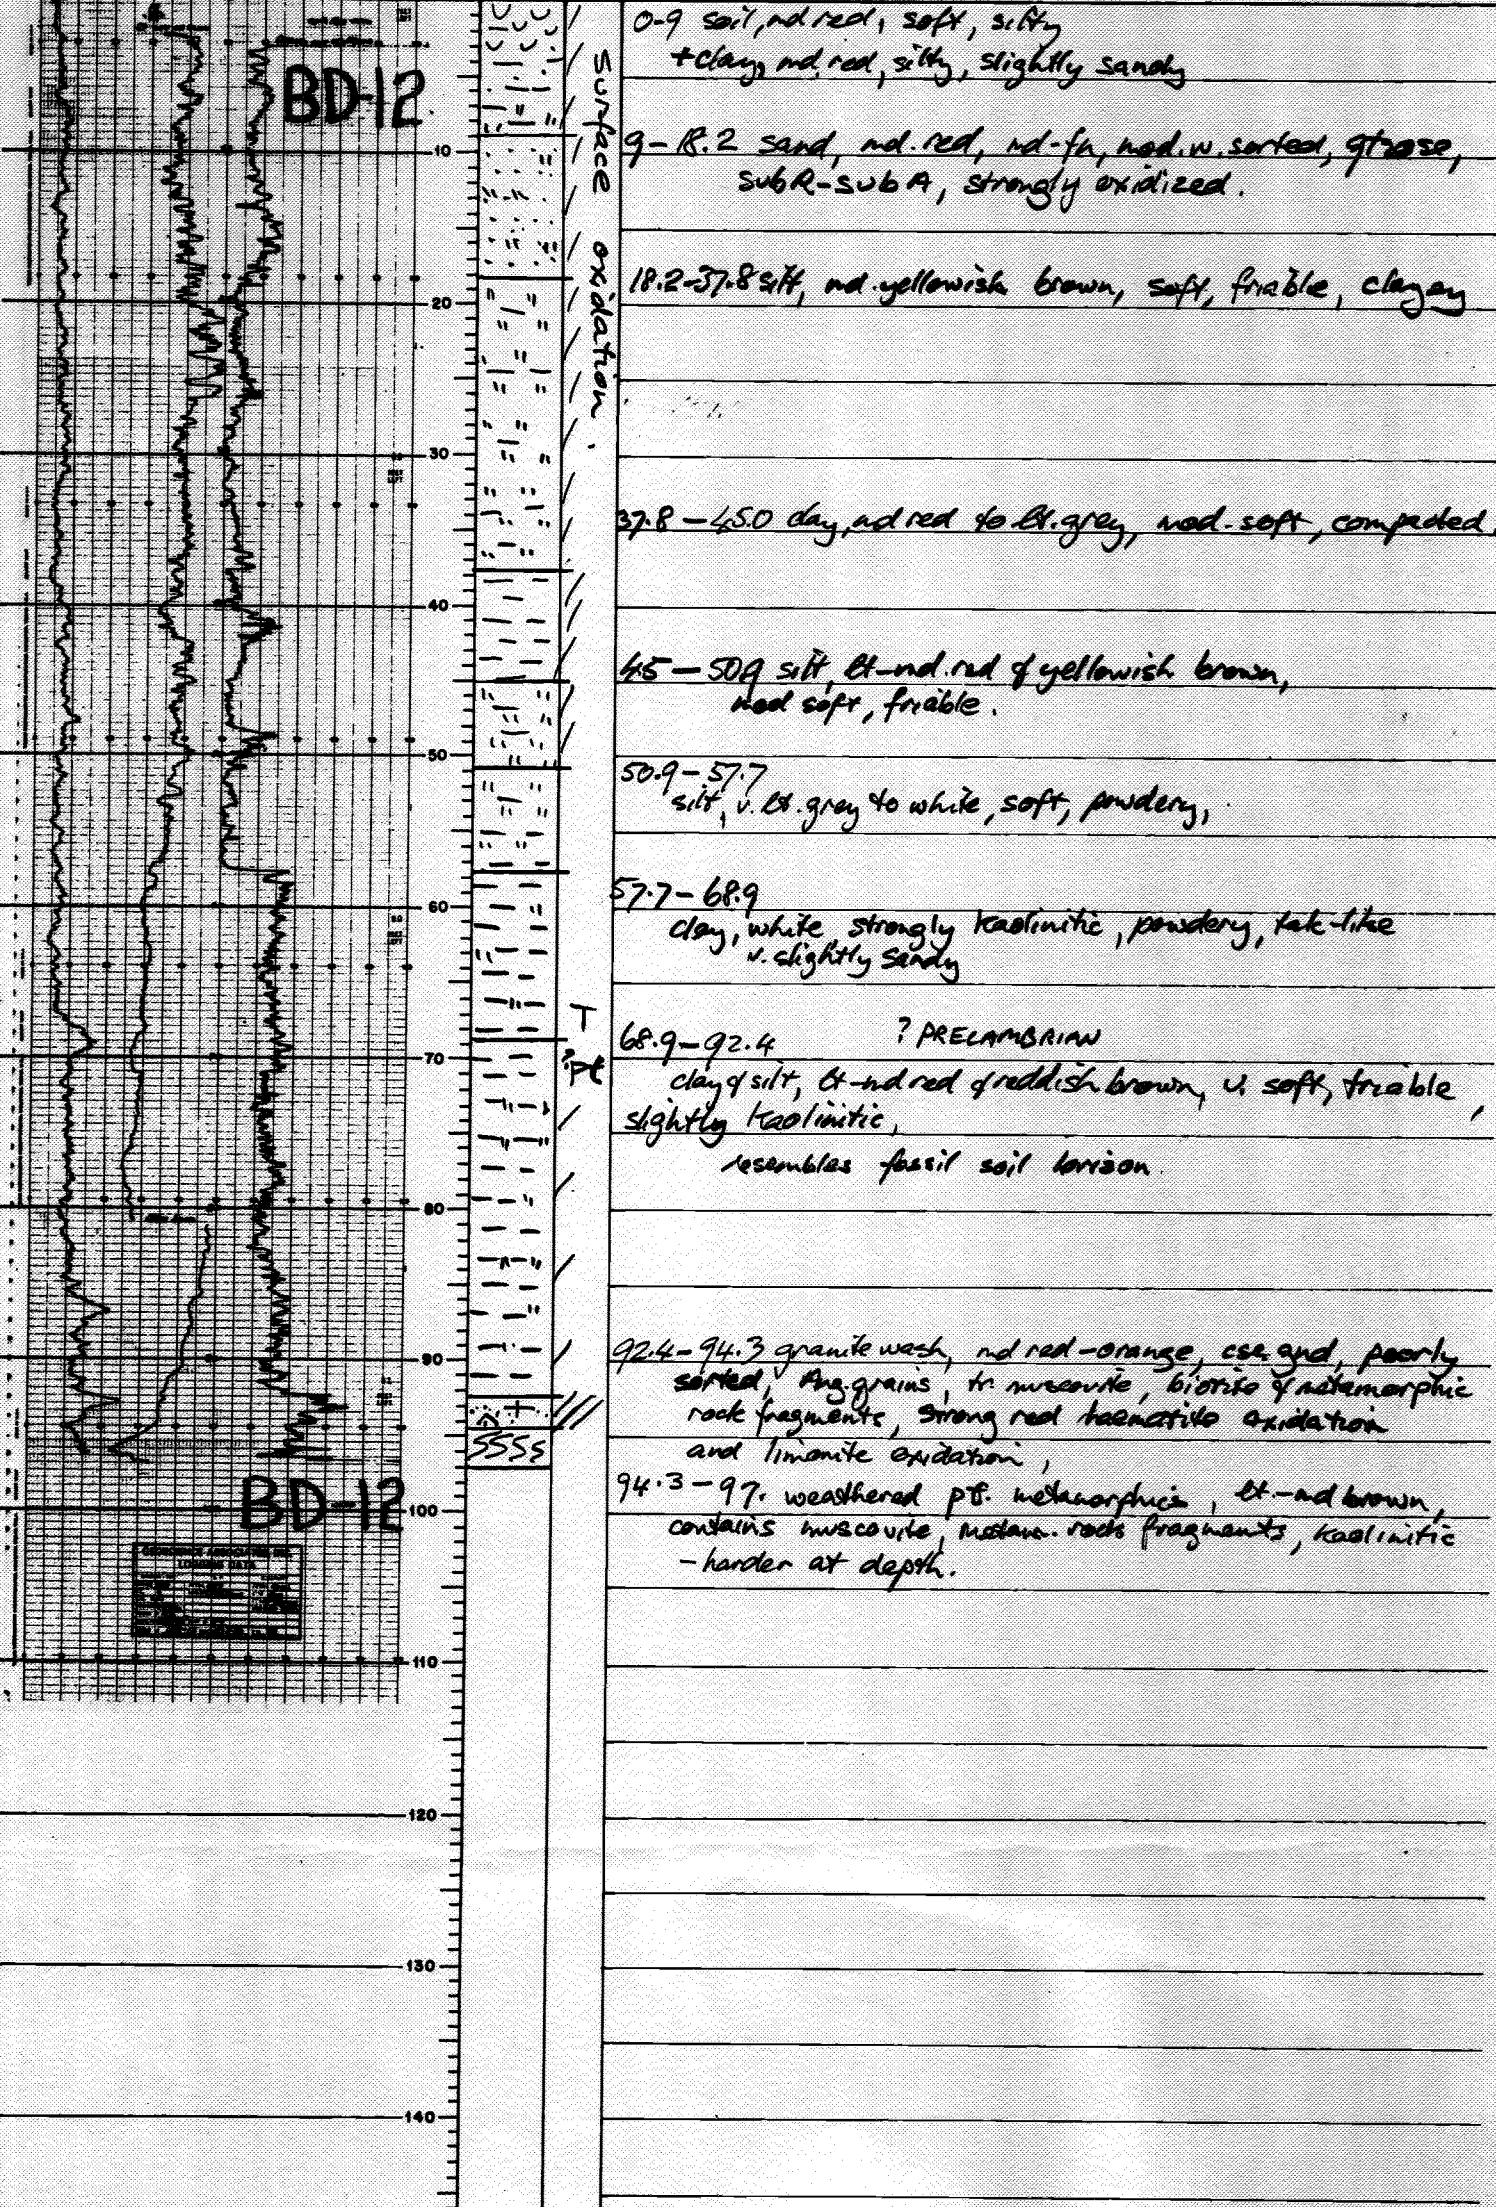 BD-12
10
20
30
40
50
60
70
80
90
100
110
120
130
140
BD-12
LOGGING DATA
surface oxidation.
T
?pt
0-9 soil, md red, soft, silty
+clay, md, red, silty, slightly sandy
9-18.2 sand, md. red, md-fn, mod.w.sorted, qtzose,
subR-subA, strongly oxidized.
18.2-37.8 silt, md.yellowish brown, soft, friable, clayey
37.8-45.0 clay, md red to lt.grey, mod. soft, compacted.
45-50.9 silt, lt-md.red & yellowish brown,
mod soft, friable.
50.9-57.7
silt, v. lt.grey to white, soft, powdery,
57.7-68.9
clay, white strongly kaolinitic, powdery, talc-like
v. slightly sandy
68.9-92.4 ? PRECAMBRIAN
clay & silt, lt-md red & reddish brown, v. soft, friable,
slightly kaolinitic,
resembles fossil soil horizon
92.4-94.3 granite wash, md red-orange, cse.gnd, poorly
sorted, Ang.grains, tr. muscovite, biotite & metamorphic
rock fragments, strong red haematite oxidation
and limonite oxidation,
94.3-97. weathered pt. metamorphics, lt.-md brown,
contains muscovite, metam. rock fragments, kaolinitic
-harder at depth.